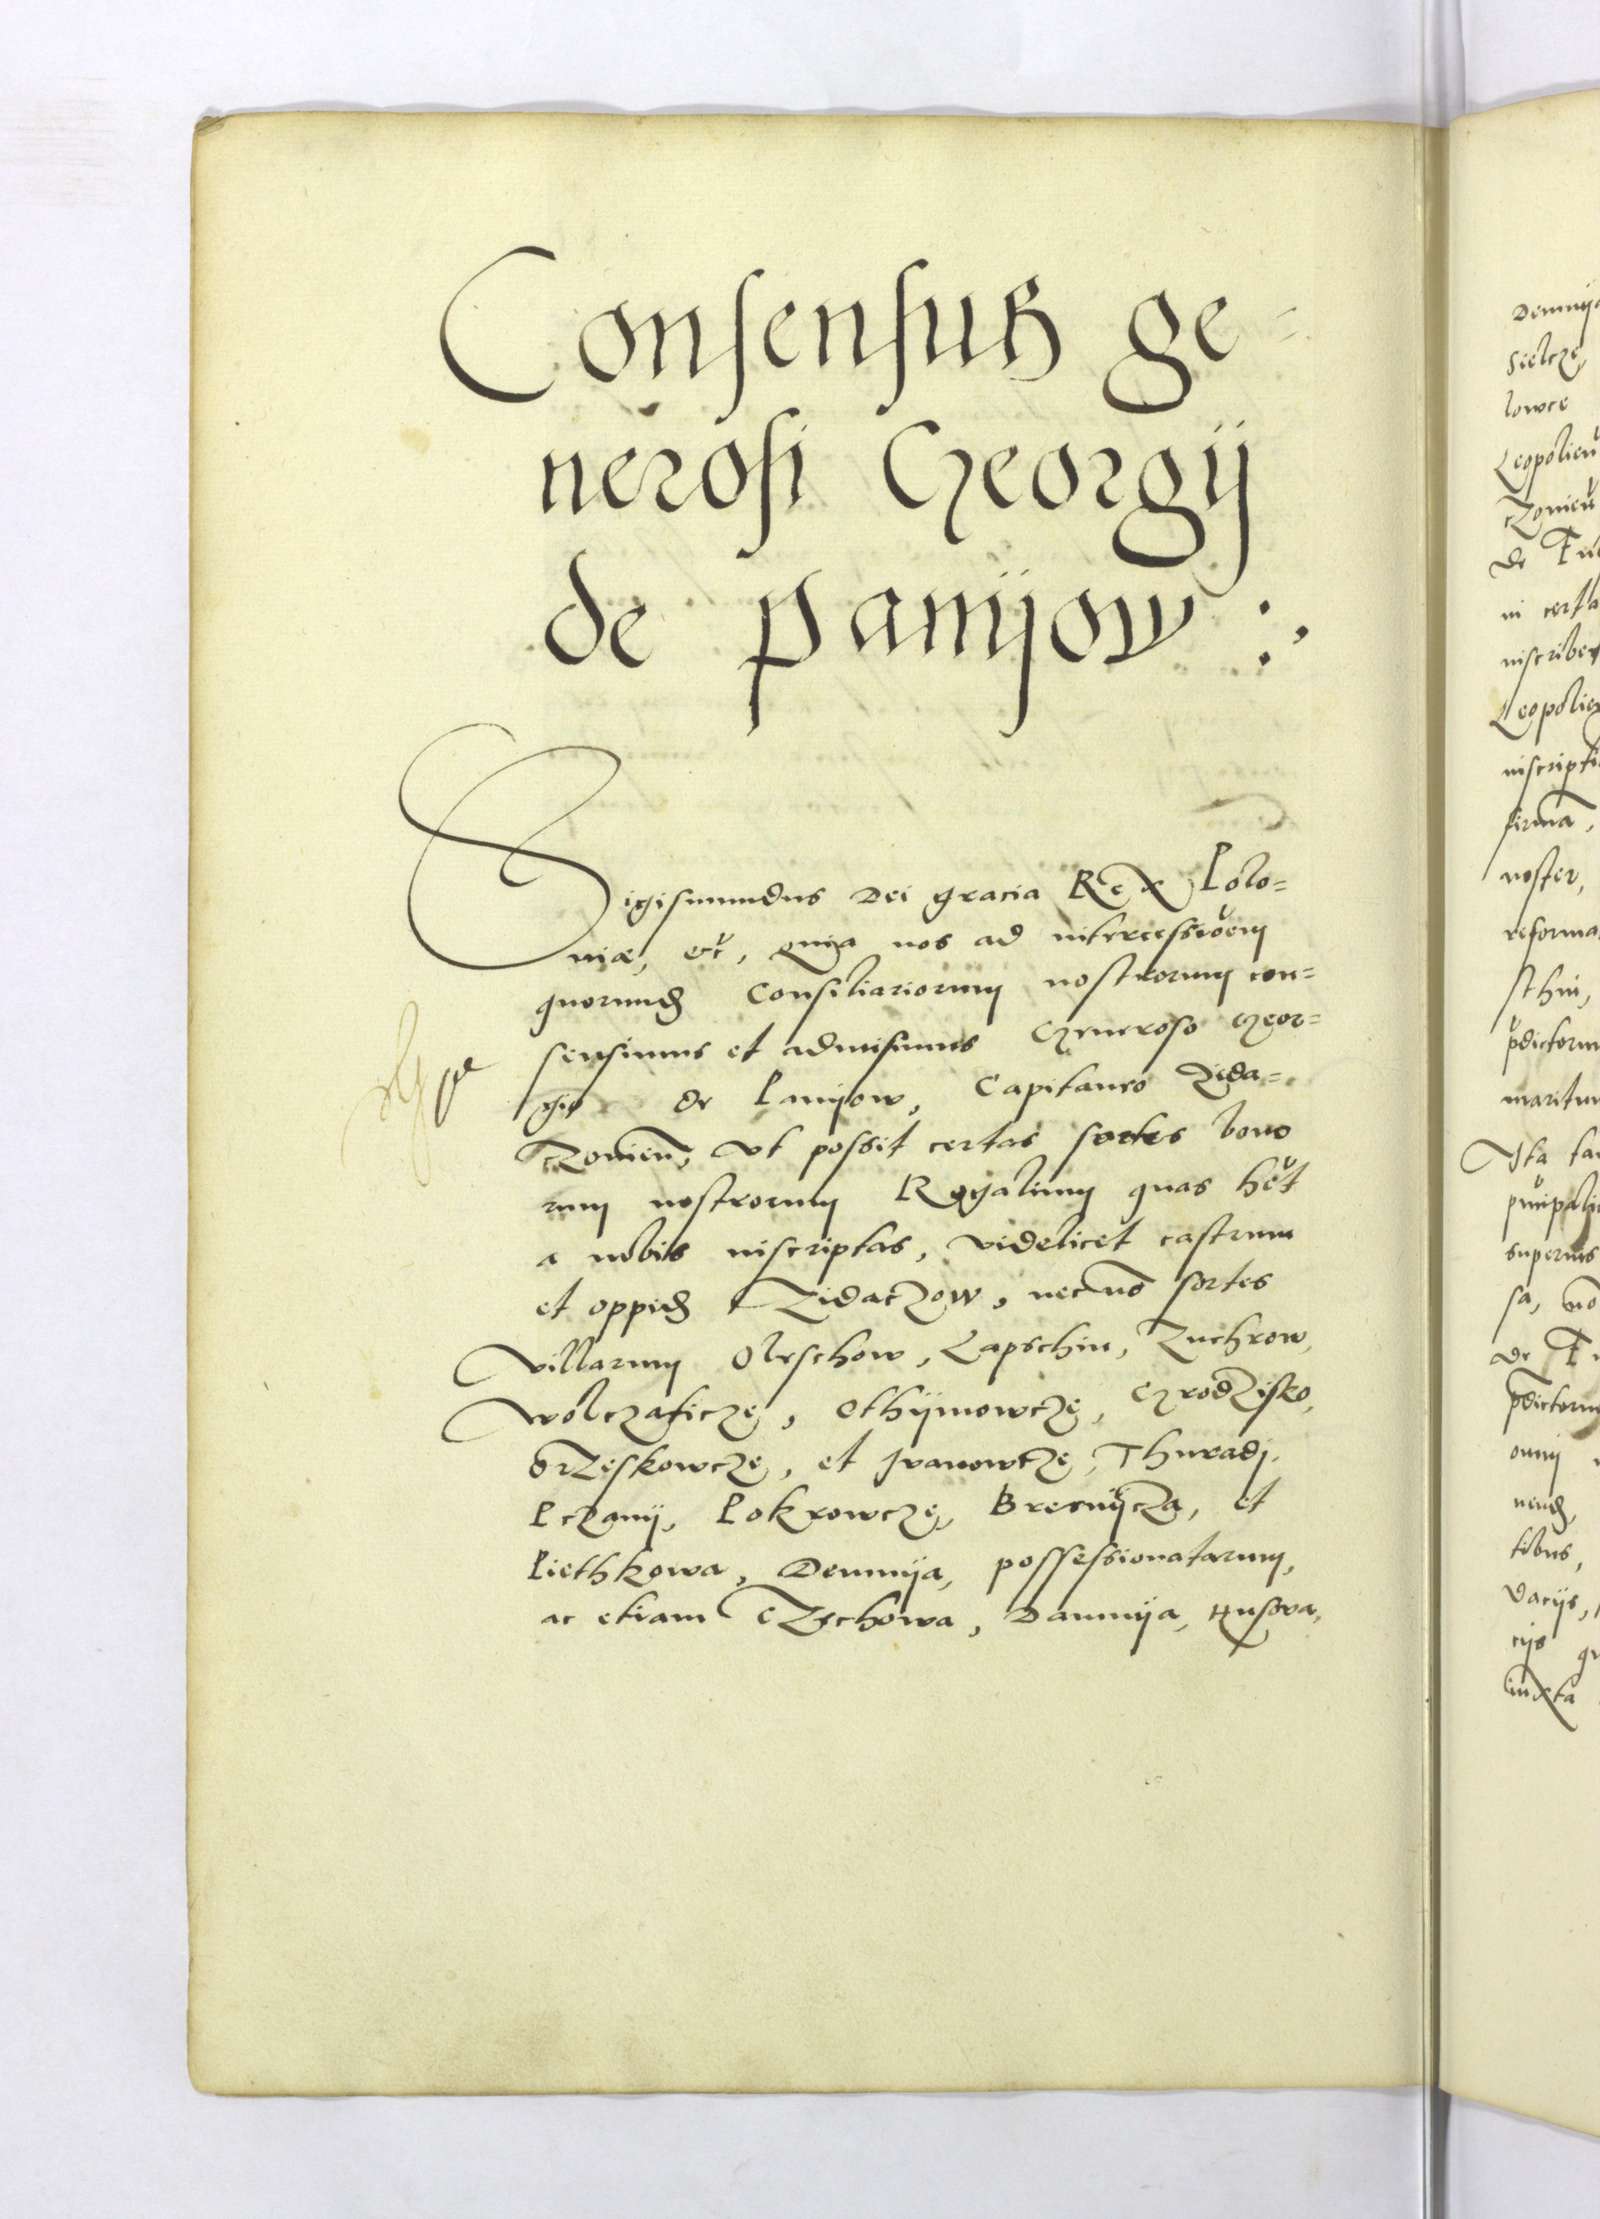 Consensus ge=
nerosi Georgij
de Pamijow :,
Sigismundus Dei gracia Rex Polo=
niæ, etc, quia nos ad intercessioem
quorund Consiliariorum nostrorum con=
sensimus et admisimus Generoso Geor=
gio de Pamijow, Capitaneo Zida=
czomien, Vt possit certas sortes bono
rum nostrorum Regalium quas het
a nobis inscriptas, videlicet castrum
et oppid Zidaczow, necno sortes
Villarum Oleschow, Lapschin, Zuchrow,
Wolczaticze, Othijmowcze, Grodzisko,
Orzeskowcze, et Ivanowcze, Thuradj,
Pczanij, Pokrowcze, Bresnijcza, et
Piethkowa, Demnija, possessionatarum,
ac etiam Czechowa, Damnija,
Demnija
Sielcze
lowce
Leopolien
czomien
de
in certa
inscribe
Leopolien
inscripti
firma,
noster,
reforma
schin,
pdictorum
maritum
Ita ta
superius
sa, no
de
pdictorum
omnj
nend,
tibus,
Dacijs,
cijs
iuxta